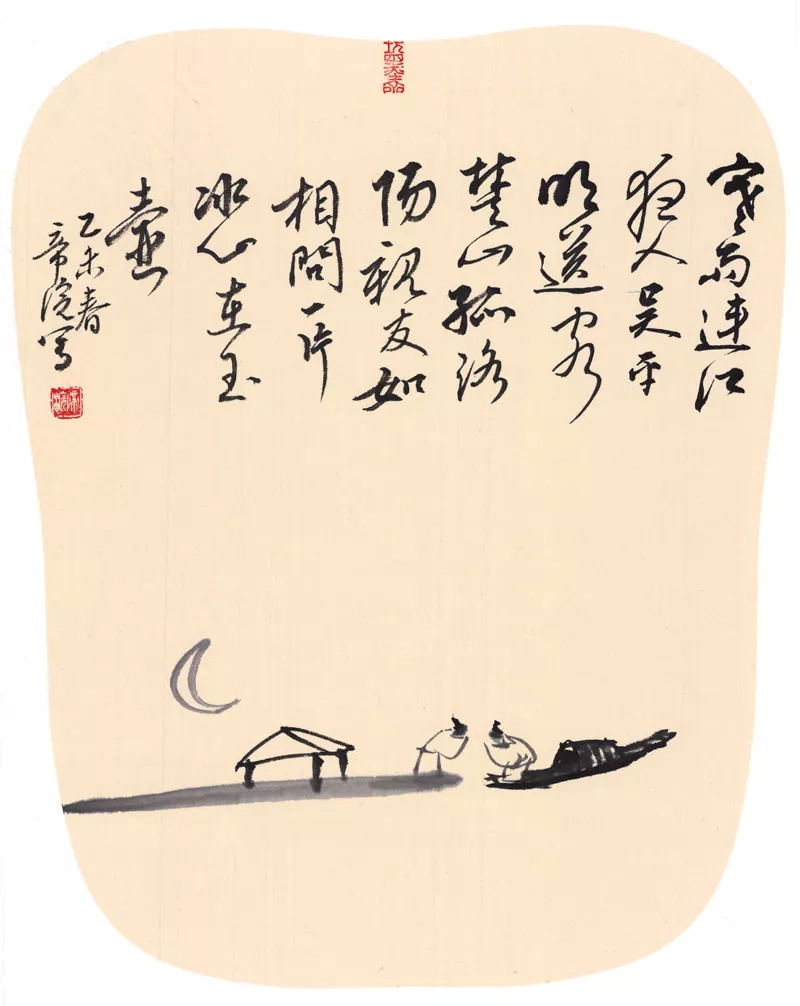 寒雨連江
夜入吳平
明送客
楚山孤洛
陽親友如
相問一片
冰心在玉
壺
乙未春
寫